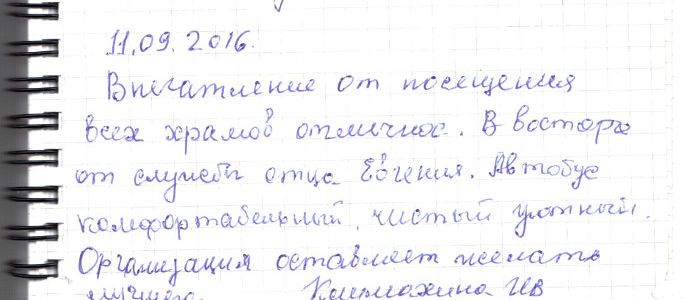 11.09.2016.
Впечатление от посещения
всех храмов отличное. В восторге
от службы отца Евгения. Автобус
комфортабельный, чистый уютный.
Организация оставляет желать
лучшего.